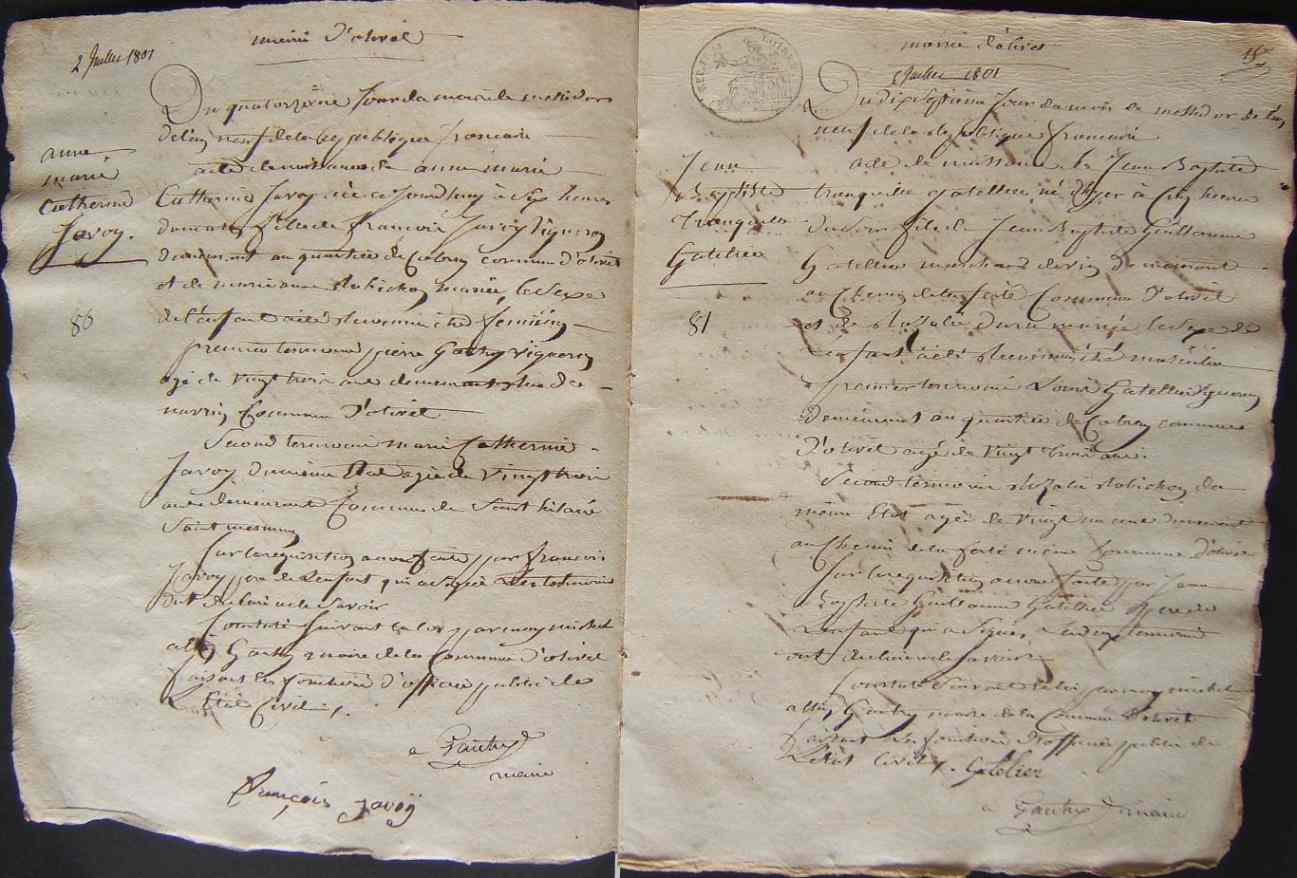 mairie d'olivet
2 Juillet 1801
Du quatorzième Jour du mois de messidor
de l'an neuf de la République francaise
anne
marie
Catherine
Javoy.
80
acte de naissance de anne marie
Catherine Javoy née ce Jourdhuy à Six heures
du matin fille de françois Javoy Vigneron
demeurant au quartier de Coubray commune d'olivet
et de marie anne Robichon mariés, le Sexe
de l'enfant a été Reconnu être feminin
premier temoin pierre Gautry Vigneron
agé de Vingt trois ans demeurant
commune d'olivet
Second temoin marie Catherine
Javoy du même Etat agée de Vingt trois
ans demeurant Commune de Saint hilaire
Saint mesmin
Sur la requisition a nous faite par françois
Javoy pere de Lenfant, qui a signé
ont declaré ne le Savoir
Constaté Suivant la loy par moy michel
Gautry maire de la Commune d'olivet
faisant les fonctions d'officier public de
l'Etat Civil
Gautry
maire
François javoy
mairie d'olivet
18
6 Juillet 1801
Du dixseptieme Jour du mois de messidor de l'an
neuf de la République francaise
Jean
Baptiste
Tranquille
Gatellier
81
acte de naissance de Jean Baptiste
tranquille Gatellier né hyer à Cinq heures
du Soir fils de Jean Baptiste Guillaume
Gatellier marchand de vin demeurant
au Chemin de la ferté Commune d'olivet
et de mariés le Sexe de
l'enfant a été Reconnu être masculin
premier temoin Louis Gatellier Vigneron
demeurant au quartier de Coubray commune
d'olivet agé de Vingt trois ans.
Second temoin Robichon du
même Etat agée de Vingt un ans demeurant
au Chemin de la ferté même Commune d'olivet
Sur la requisition a nous faite par Jean
Baptiste Guillaume Gatellier pere de
Lenfant qui a Signé, les deux temoins
ont declaré ne le Savoir
Constaté Suivant la loi par moy michel
Gautry maire de la Commune d'olivet
faisant les fonctions d'officier public de
L'Etat Civil. Gatelier
Gautry maire